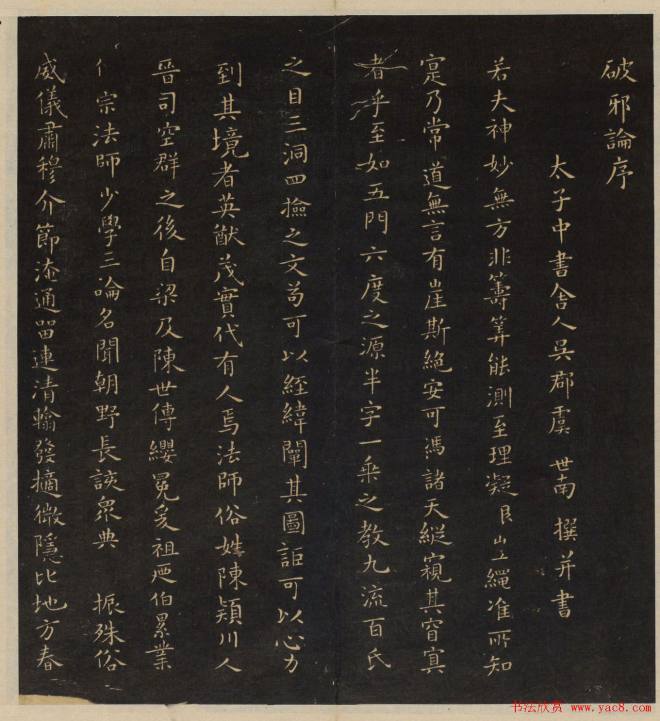 破邪論序
太子中書舍人吳郡虞世南撰并書
若夫神妙無方非籌筭能測至理凝 繩准所知
寔乃常道無言有崖斯絕安可憑諸天縱窺其窅冥
者乎至如五門六度之源半字一乘之教九流百氏
之目三洞四撿之文苟可以經緯闡其圖詎可以心力
到其境者英猷茂實代有人焉法師俗姓陳潁川人
晉司空群之後自梁及陳世傳纓冕爰祖 伯累業
宗法師少學三論名聞朝野長該眾典 振殊俗
威儀肅穆介節淹通留連清翰發摘微隱比地方春
书法欣赏 www.yac8.com